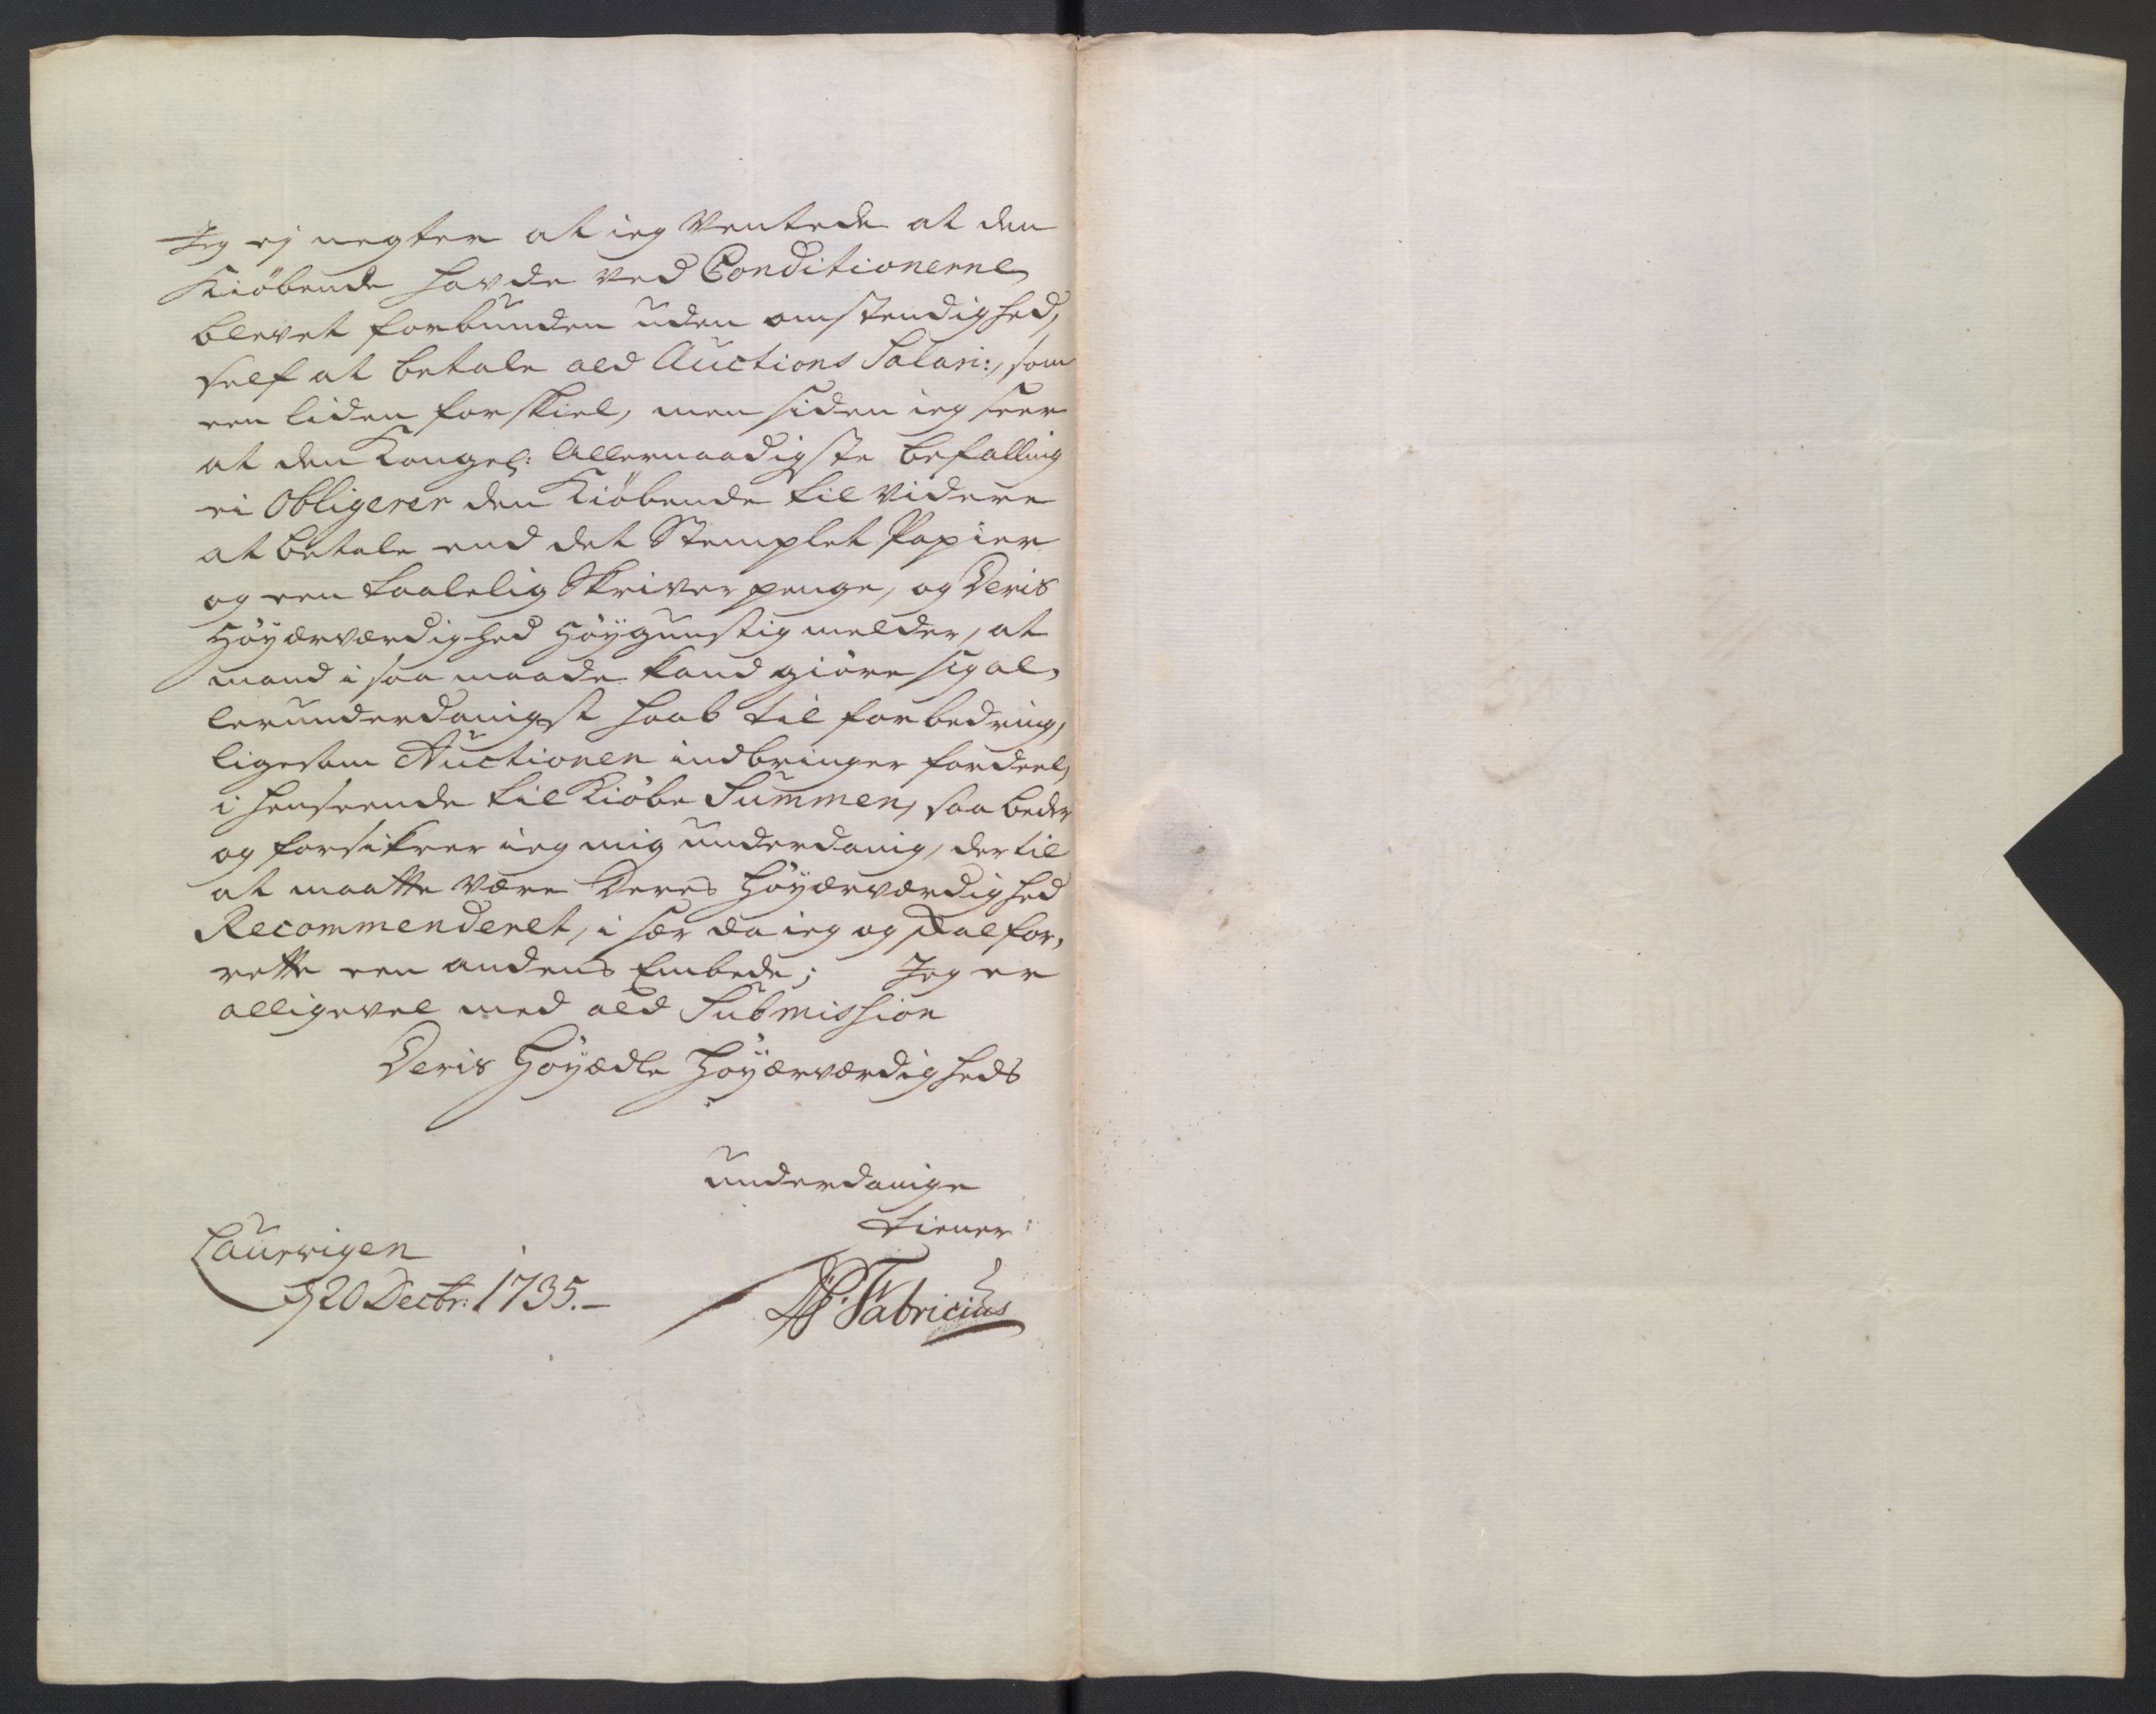 Jeg ej negter at ieg Ventede at den
Kiöbende havde ved Conditionerne
blevet forbunden uden omstendighed,
self at betale ald Auctions Salari:, som
een liden forskiel, men siden ieg seer
at den Kongel: Allernaadigste befalling
ei Obligerer den Kiöbende til Videre
at betale end det Stemplet Papier
og een taalelig Skriver penge, og Deris
Höyærværdighed höygunstig melder, at
mand i saa maade kand giöre sig al,
lerunderdanigst haab til forbedring,
ligesom Auctionen indbringer fordeel,
i henseende til Kiöbe Summen, saa beder
og forsikrer ieg mig underdanig, der til
at maatte være Deres Höyærværdighed
Recommenderet, i sær da ieg og skal for,
rette een andens Embede; Jeg er
alligevel med ald Submission
Deris Höyædle Höyærværdigheds
underdanige
tiener
Laurvigen
d 20 Decbr: 1735.–
Fabricius